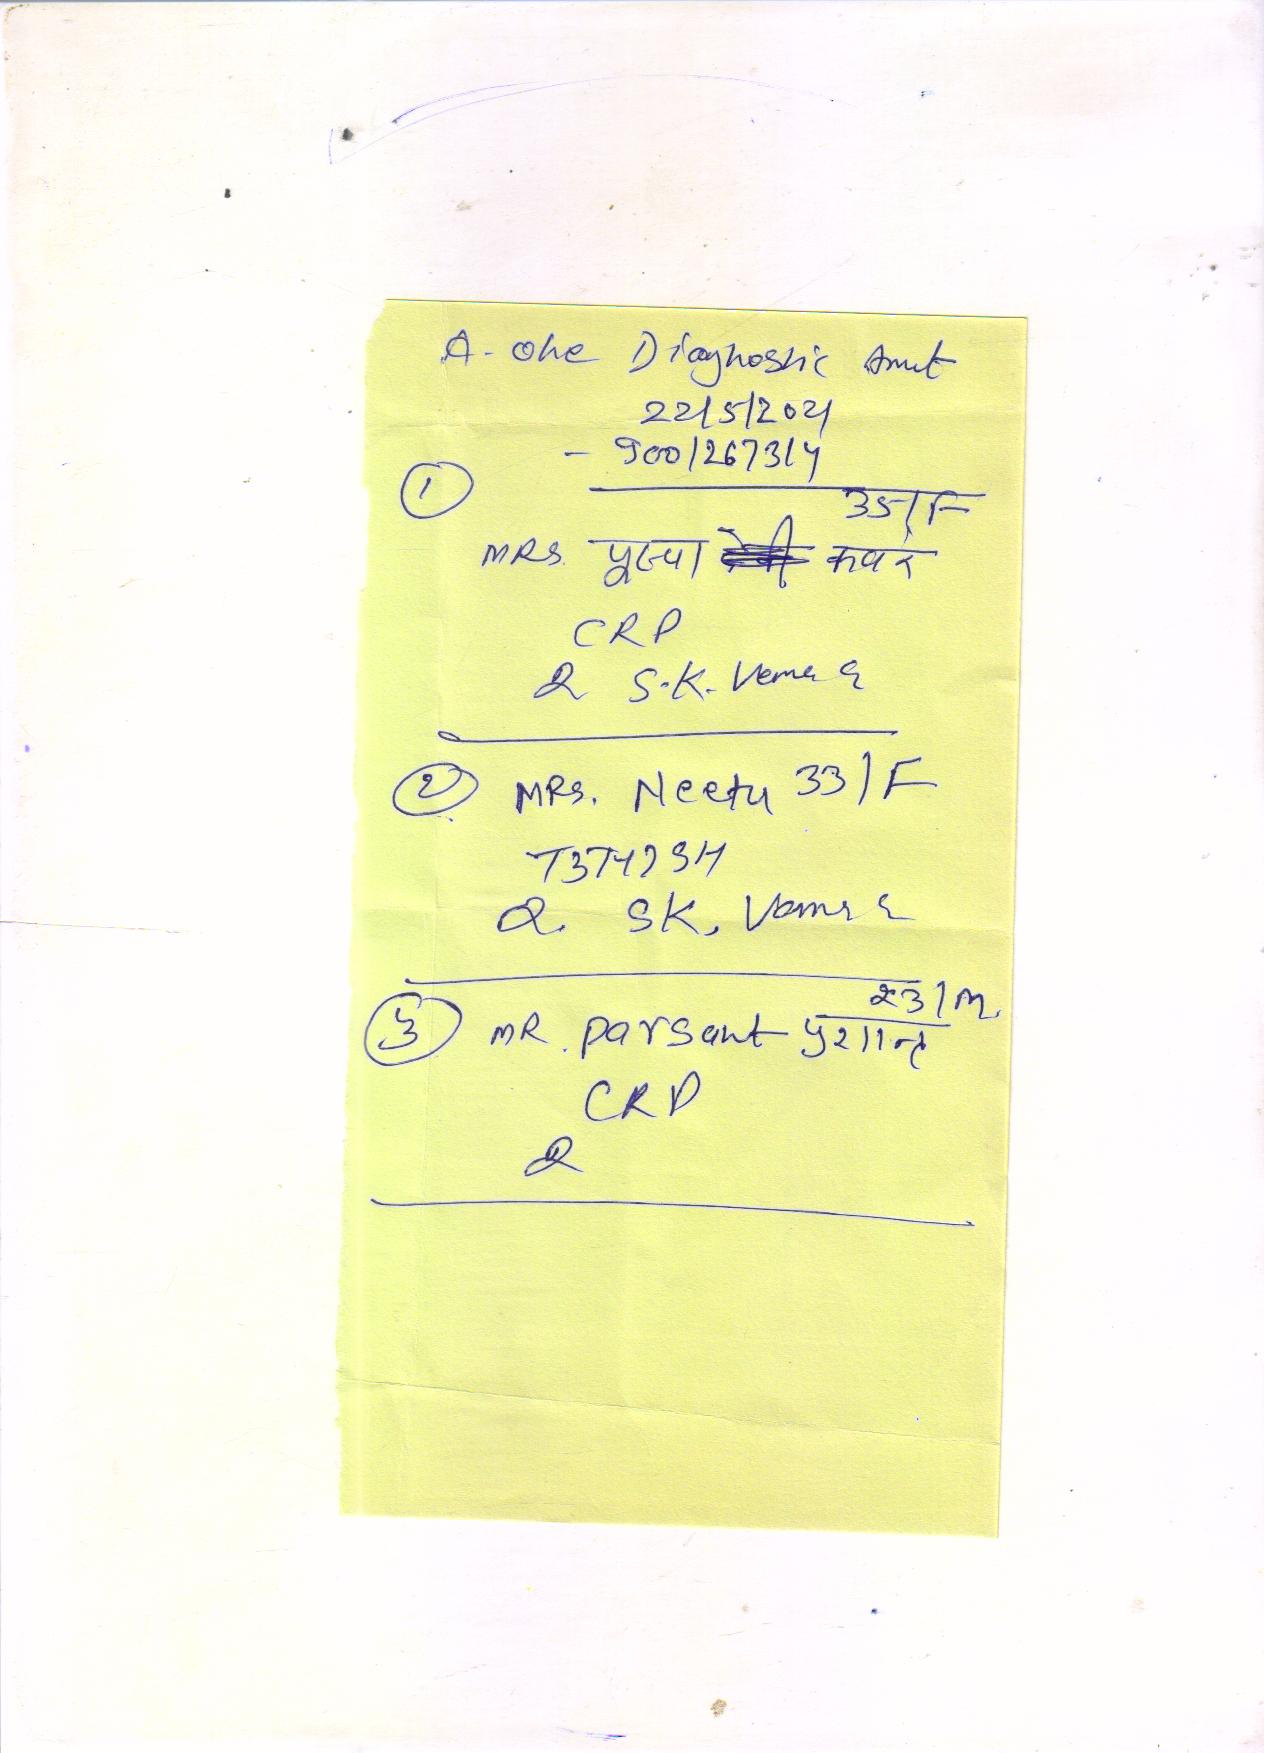 A-one Diagnostic Amet
22/5/2021
- 9001267314
① 35/F
MRS. कवर
CRP
S.K. Verma
② MRS. Neetu 33/F
T3T4TSH
SK. Verma
③ 23/M
MR. parsant
CRP